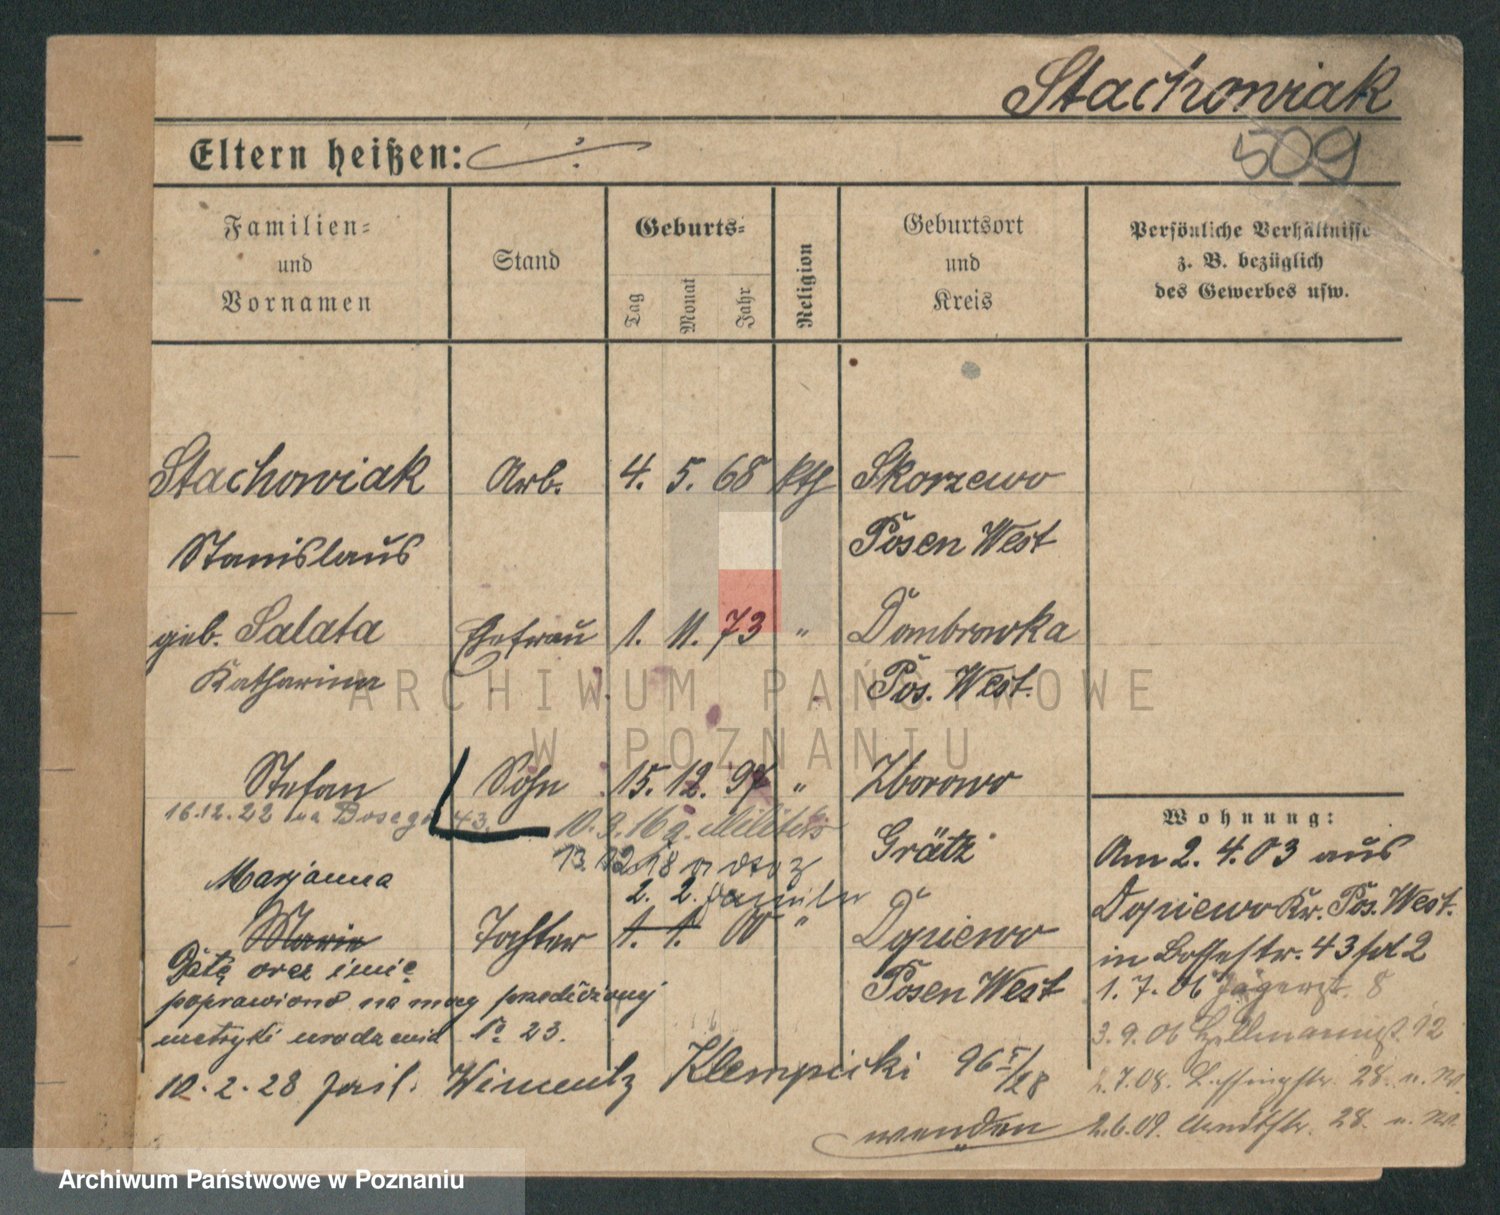 Stachowiak
509
Eltern heißen:
Familien=
und
Vornamen
Stand
Geburts=
Tag
Monat
Jahr
Religion
Geburtsort
und
Kreis
Persönliche Verhältnisse
z. B. bezüglich
des Gewerbes usw.
Stachowiak Arb. 4. 5. 68 kth Skorzewo
Stanislaus Posen West
geb. Salata Ehefrau 1. 11. 73 " Dombrowka
Katharina Pos. West.
Stefan Sohn 15. 12. 97 " Zborowo
16.12.22 na 43. 10. 3. 16 z. Militär
Grätz
13 12 18
Marjanna 2. 2.
Marie Tochter 1. 1. 00 " Dopiewo
Posen West
Datę oraz imię
poprawiono na mocy przedłożonej
metryki urodzenia No 23.
10. 2. 28 Klempicki 96 I/28
wenden
Wohnung:
Am 2. 4. 03 aus
Dopiewo Kr. Pos. West.
in 43 2
1. 7. 06 Jägerst. 8
3. 9. 06 12
2.7.08. Lessingstr. 28.
2.6.09. Arndtstr. 28.
ARCHIWUM PAŃSTWOWE
W POZNANIU
Archiwum Państwowe w Poznaniu